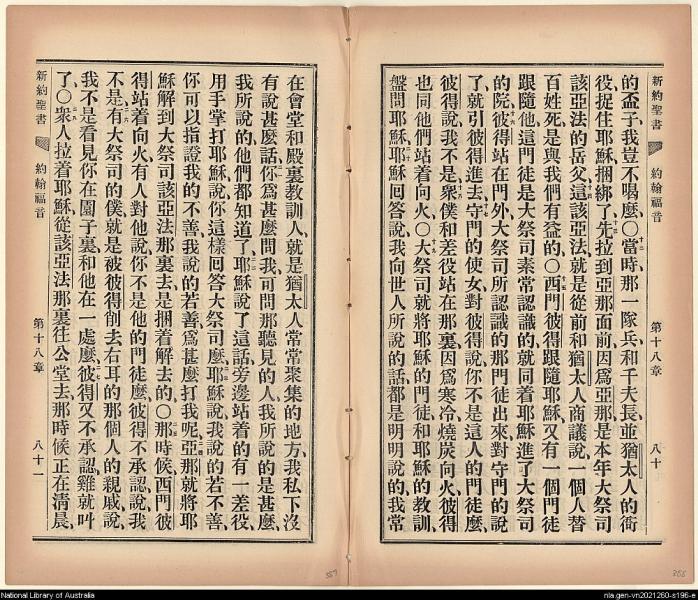 新約聖書 約翰福音 第十八章 八十
的盃子、我豈不喝麼○當時那一隊兵和千夫長、並猶太人的衙
役、捉住耶穌捆綁了、先拉到亞那面前、因爲亞那是本年大祭司
該亞法的岳父、這該亞法就是從前和猶太人商議說、一個人替
百姓死、是與我們有益的○西門彼得跟隨耶穌、又有一個門徒
跟隨他、這門徒是大祭司素常認識的、就同着耶穌進了大祭司
的院、彼得站在門外、大祭司所認識的那門徒出來、對守門的說
了、就引彼得進去、守門的使女對彼得說、你不是這人的門徒麼、
彼得說、我不是、衆僕和差役站在那裏、因爲寒冷、燒炭向火、彼得
也同他們站着向火○大祭司就將耶穌的門徒和耶穌的教訓、
盤問耶穌、耶穌回答說、我向世人所說的話、都是明明說的、我常
在會堂和殿裏教訓人、就是猶太人常常聚集的地方、我私下沒
有說甚麼話、你爲甚麼問我、可問那聽見的人、我所說的是甚麼、
我所說的他們都知道了、耶穌說了這話、旁邊站着的有一差役、
用手掌打耶穌、說、你這樣回答大祭司麼、耶穌說、我說的若不善、
你可以指證我的不善、我說的若善、爲甚麼打我呢、亞那就將耶
穌解到大祭司該亞法那裏去、是捆着解去的○那時候、西門彼
得站着向火、有人對他說、你不是他的門徒麼、彼得不承認、說、我
不是、有大祭司的僕、就是被彼得削去右耳的那個人的親戚、說、
我不是看見你在園子裏和他在一處麼、彼得又不承認、雞就叫
了○衆人拉着耶穌、從該亞法那裏往公堂去、那時候正在清晨、
新約聖書 約翰福音 第十八章 八十一
National Library of Australia
nla.gen-vn2021260-s196-e